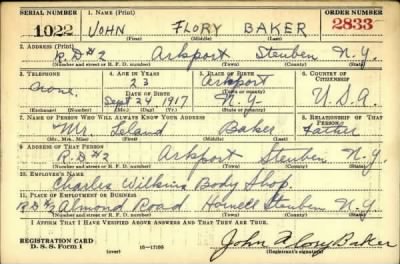 SERIAL NUMBER 1. NAME (Print) ORDER NUMBER
1022 JOHN FLORY BAKER 2833
(First) (Middle) (Last)
2. ADDRESS (Print)
R.D#2 Arkport Steuben N.Y.
(Number and street or R. F. D. number) (Town) (County) (State)
3. TELEPHONE 4. AGE IN YEARS 5. PLACE OF BIRTH 6. COUNTRY OF CITIZENSHIP
None 23 Arkport
DATE OF BIRTH (Town or county)
Sept 24 1917 N-Y- U.S.A.
(Exchange) (Number) (Mo.) (Day) (Yr.) (State or country)
7. NAME OF PERSON WHO WILL ALWAYS KNOW YOUR ADDRESS 8. RELATIONSHIP OF THAT PERSON
Mr. Leland Baker Father
(Mr., Mrs., Miss) (First) (Middle) (Last)
9. ADDRESS OF THAT PERSON
R.D #2 Arkport Steuben N.Y.
(Number and street or R. F. D. number) (Town) (County) (State)
10. EMPLOYER'S NAME
Charles Wilkins Body Shop.
11. PLACE OF EMPLOYMENT OR BUSINESS
RD#2 Almond Road Hornell Steuben N.Y.
(Number and street or R. F. D. number) (Town) (County) (State)
I AFFIRM THAT I HAVE VERIFIED ABOVE ANSWERS AND THAT THEY ARE TRUE.
REGISTRATION CARD
D. S. S. Form 1 (over) 16—17105 John Flory Baker
(Registrant's signature)